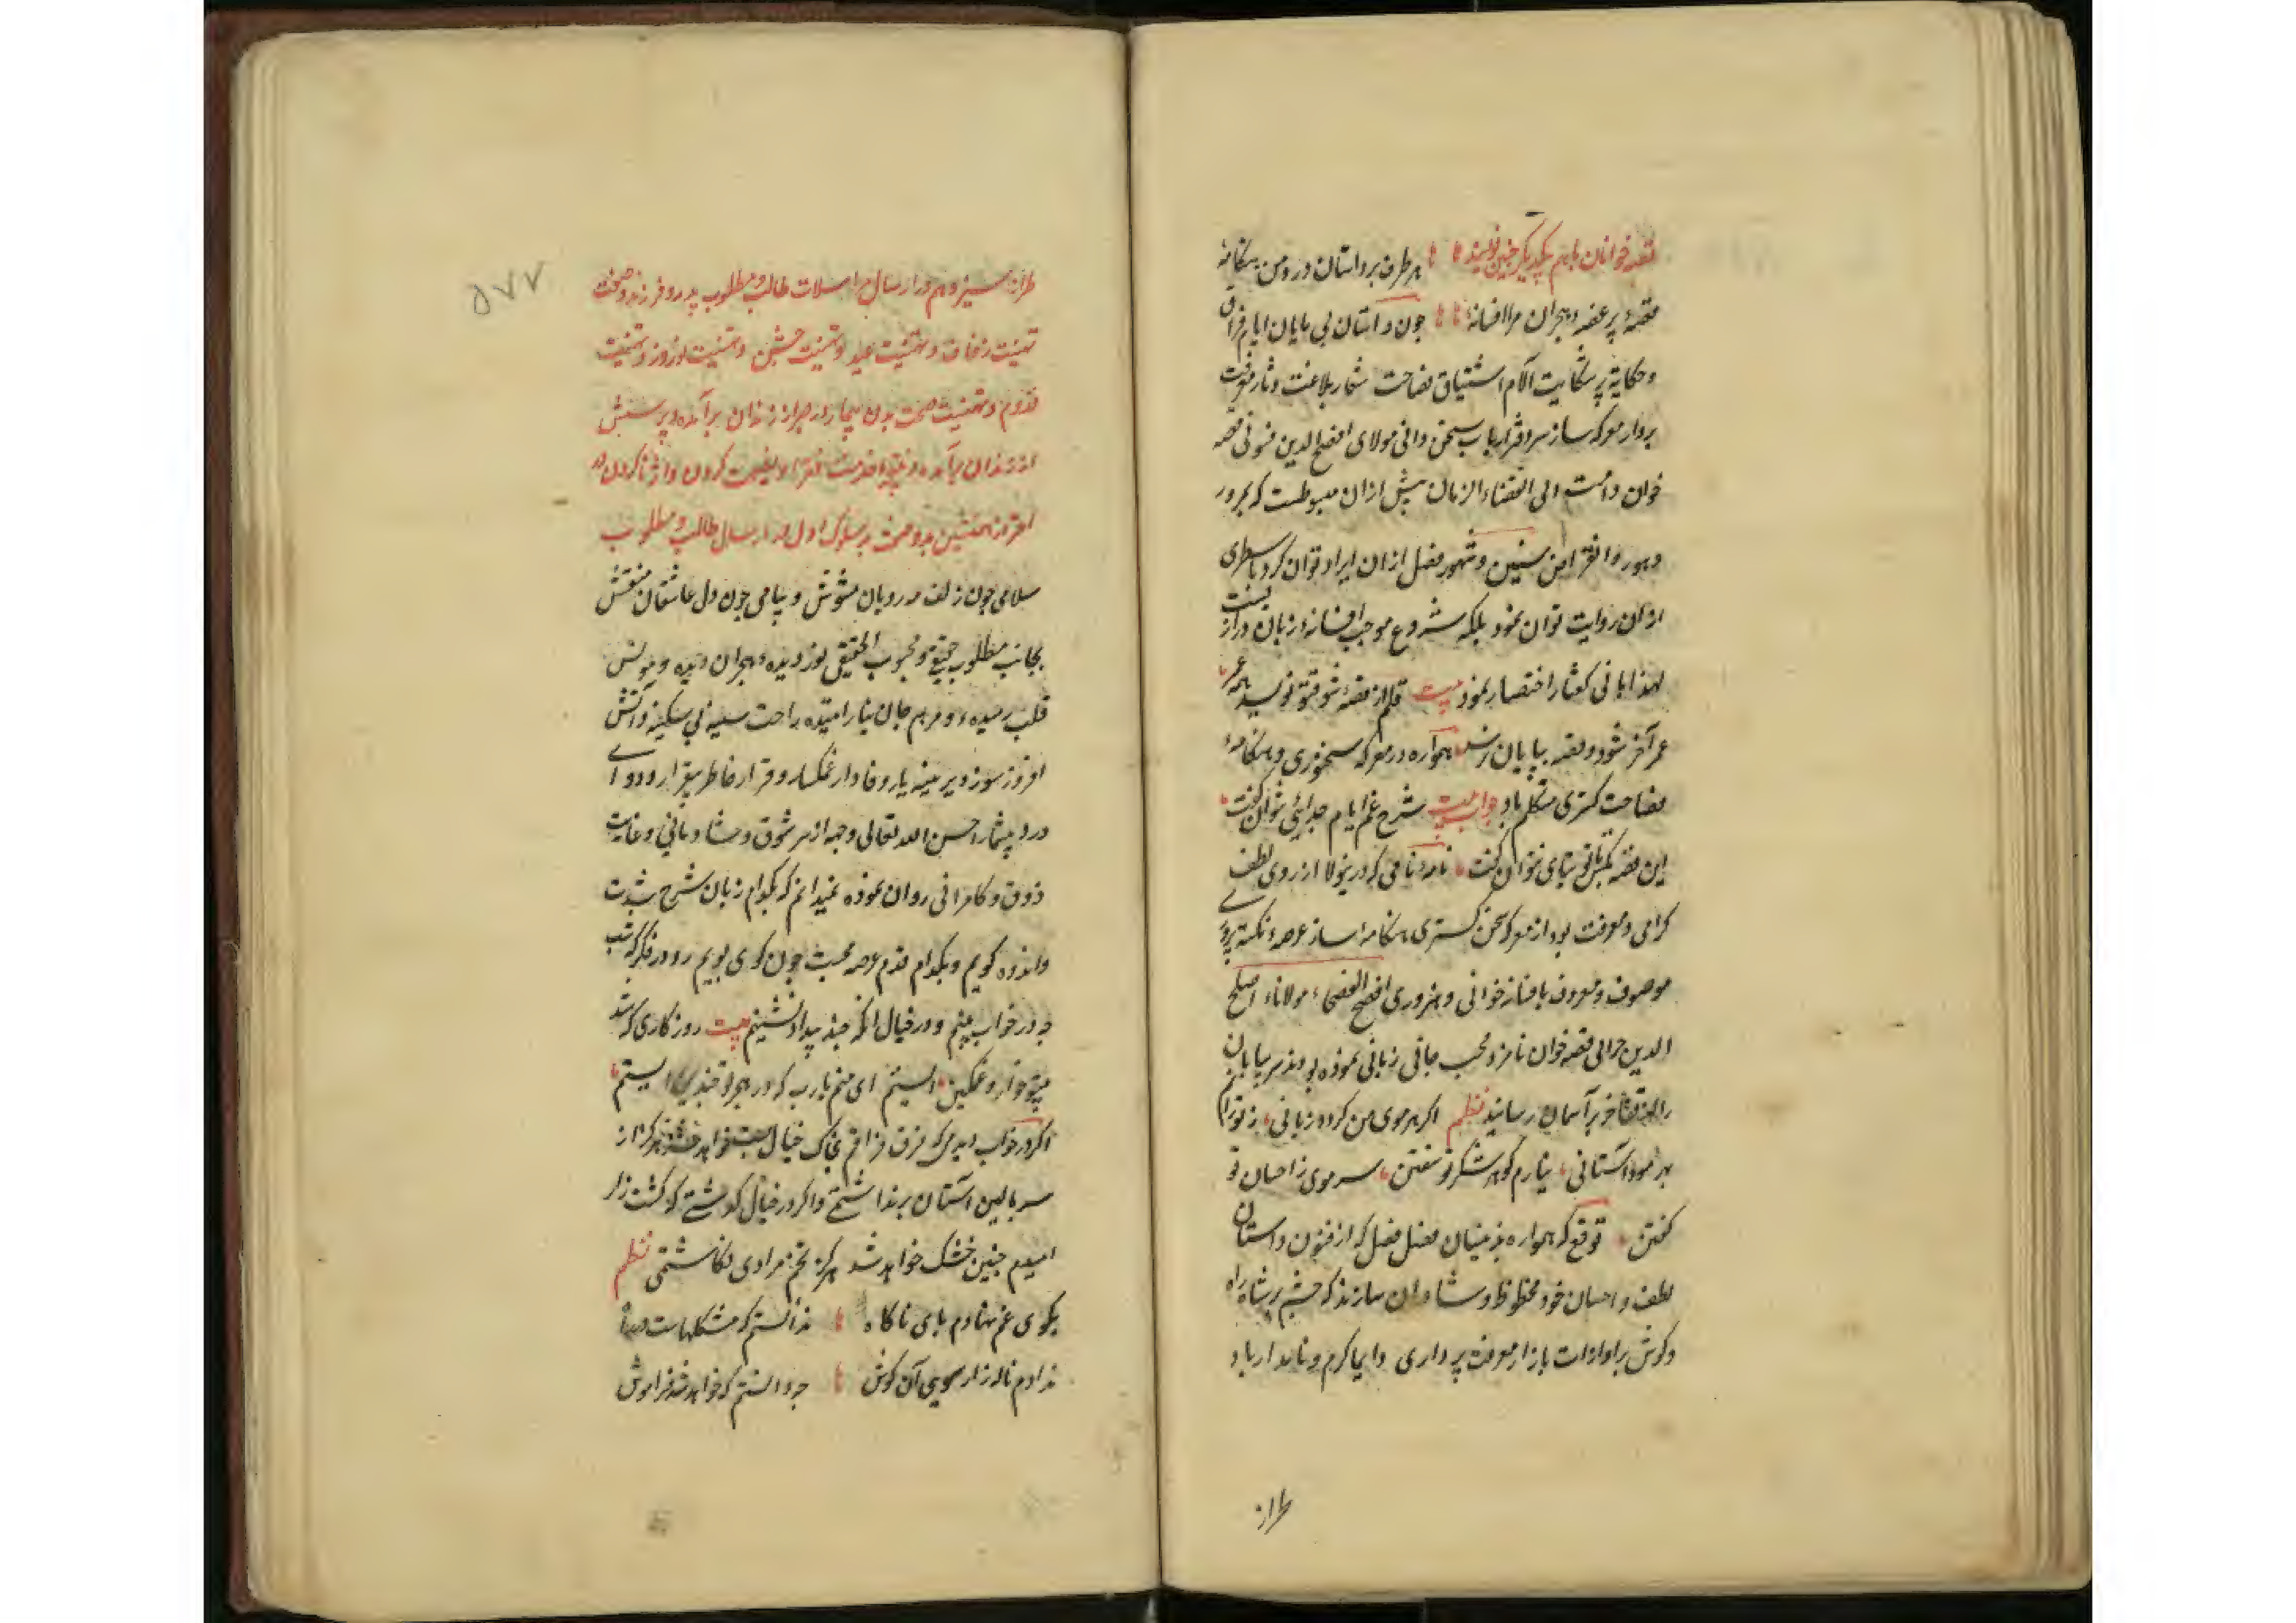 قصه خوانان باهم یکدیگر چنین نویسند هر طرف بر داستان درد من هنگامهٔ
قصهٔ پر غصه هجران مرا افسانهٔ چون داستان بی پایان ایام فراق
و حکایة پر شکایت آلام اشتیاق فصاحت شعار بلاغت دثار معرفت
بردار معرکه ساز سر دفتر ارباب سخن دانی مولای افصح الدین قصه
خوان دامت الی انقضاء الزمان بیش ازان مبسوطست که بمرور
دهور و انقراض سنین و شهور فصل ازان ایراد توان کرد یا سطری
ازان روایت توان نمود بلکه شروع موجب افسانه زبان درازیست
لهذا باختصار نمود بیت قلم از قصهٔ شوقت نویسد همه عمر
عمر آخر شود و قصه بپایان نرسد همواره در معرکه سخنوری و هنگامهٔ
فصاحت گستری متکلم باد جواب بیت شرح غم ایام جدائی نتوان گفت
این قصه بتنهای نتوان گفت نامهٔ نامی که درینولا از روی لطف
گرامی و معرفت بود از معرکه سخن گستری هنگامه ساز عرصهٔ نکته پروری
موصوف و معروف بافسانه خوانی و هنروری افصح الفصحاء مولانا اصلح
الدین قصه خوان نامزد محب جانی زبانی نموده بودند سر بپایان
را تفاخر بآسمان رسانید نظم اگر هر موی من گردد زبانی ز تو رانم
بهر مو داستانی نیارم گوهر شکر تو سفتن سر موی ز احسان تو
گفتن توقع که همواره فصل فصل که از فنون داستان
لطف و احسان خود محظوظ و شادمان سازند که چشم بر شاه راه
و گوش بر بازار معرفت پرداری دایما کرم و نامدار باد
طراز
۵۷۷
طراز سیزدهم در ارسال مراسلات طالب و مطلوب پدر و فرزند و صفت
تهنیت زفاف و تهنیت عید و تهنیت جشن و تهنیت نوروز و تهنیت
قدوم و تهنیت صحت بدن بیمار برآمده و پرسش
از زندان برآمده و خدمت فقرا و نصیحت کردن
احتراز همنشین بد و صفت سلوک اول در ارسال طالب و مطلوب
سلامی چون زلف مه رویان مشوش و پیامی چون دل عاشقان منقش
بجانب مطلوب و محبوب الحقیقی نور دیده هجران دیده و مونس
قلب رمیده و مرهم جان راحت سینه بی سکینه و آتش
افروز سوز دیرینه یار وفادار غمگسار و قرار خاطر بیقرار و دوای
درد بیشمار احسن الله تعالی وجهه از سر شوق و شادمانی و غایت
ذوق و کامرانی روان نموده نمیدانم که بکدام زبان شرح شدت
و اندوه گویم و بکدام قدم عرصه محبت چون گوی پویم رو در فکر که شب
چه در خواب بینم و در خیال آنکه بیت روزگاری که شد
بیتو خوار و غمگین زیستم ای صنم یارب که در هجر تو چندین زیستم
اگر در خواب دیدمی که فرق فراقم بخاک خیال خواهد خفت هرگز از
سر بالین آستان برنداشتمی و اگر در خیال گذشتی که کشت زار
امیدم چنین خشک خواهد شد هرگز تخم مرادی نکاشتمی نظم
بکوی غم نهادم پای ناگاه ندانستم که مشکلهاست در راه
ندادم ناله زار سوی آن گوش چه دانستم که خواهد شد فراموش